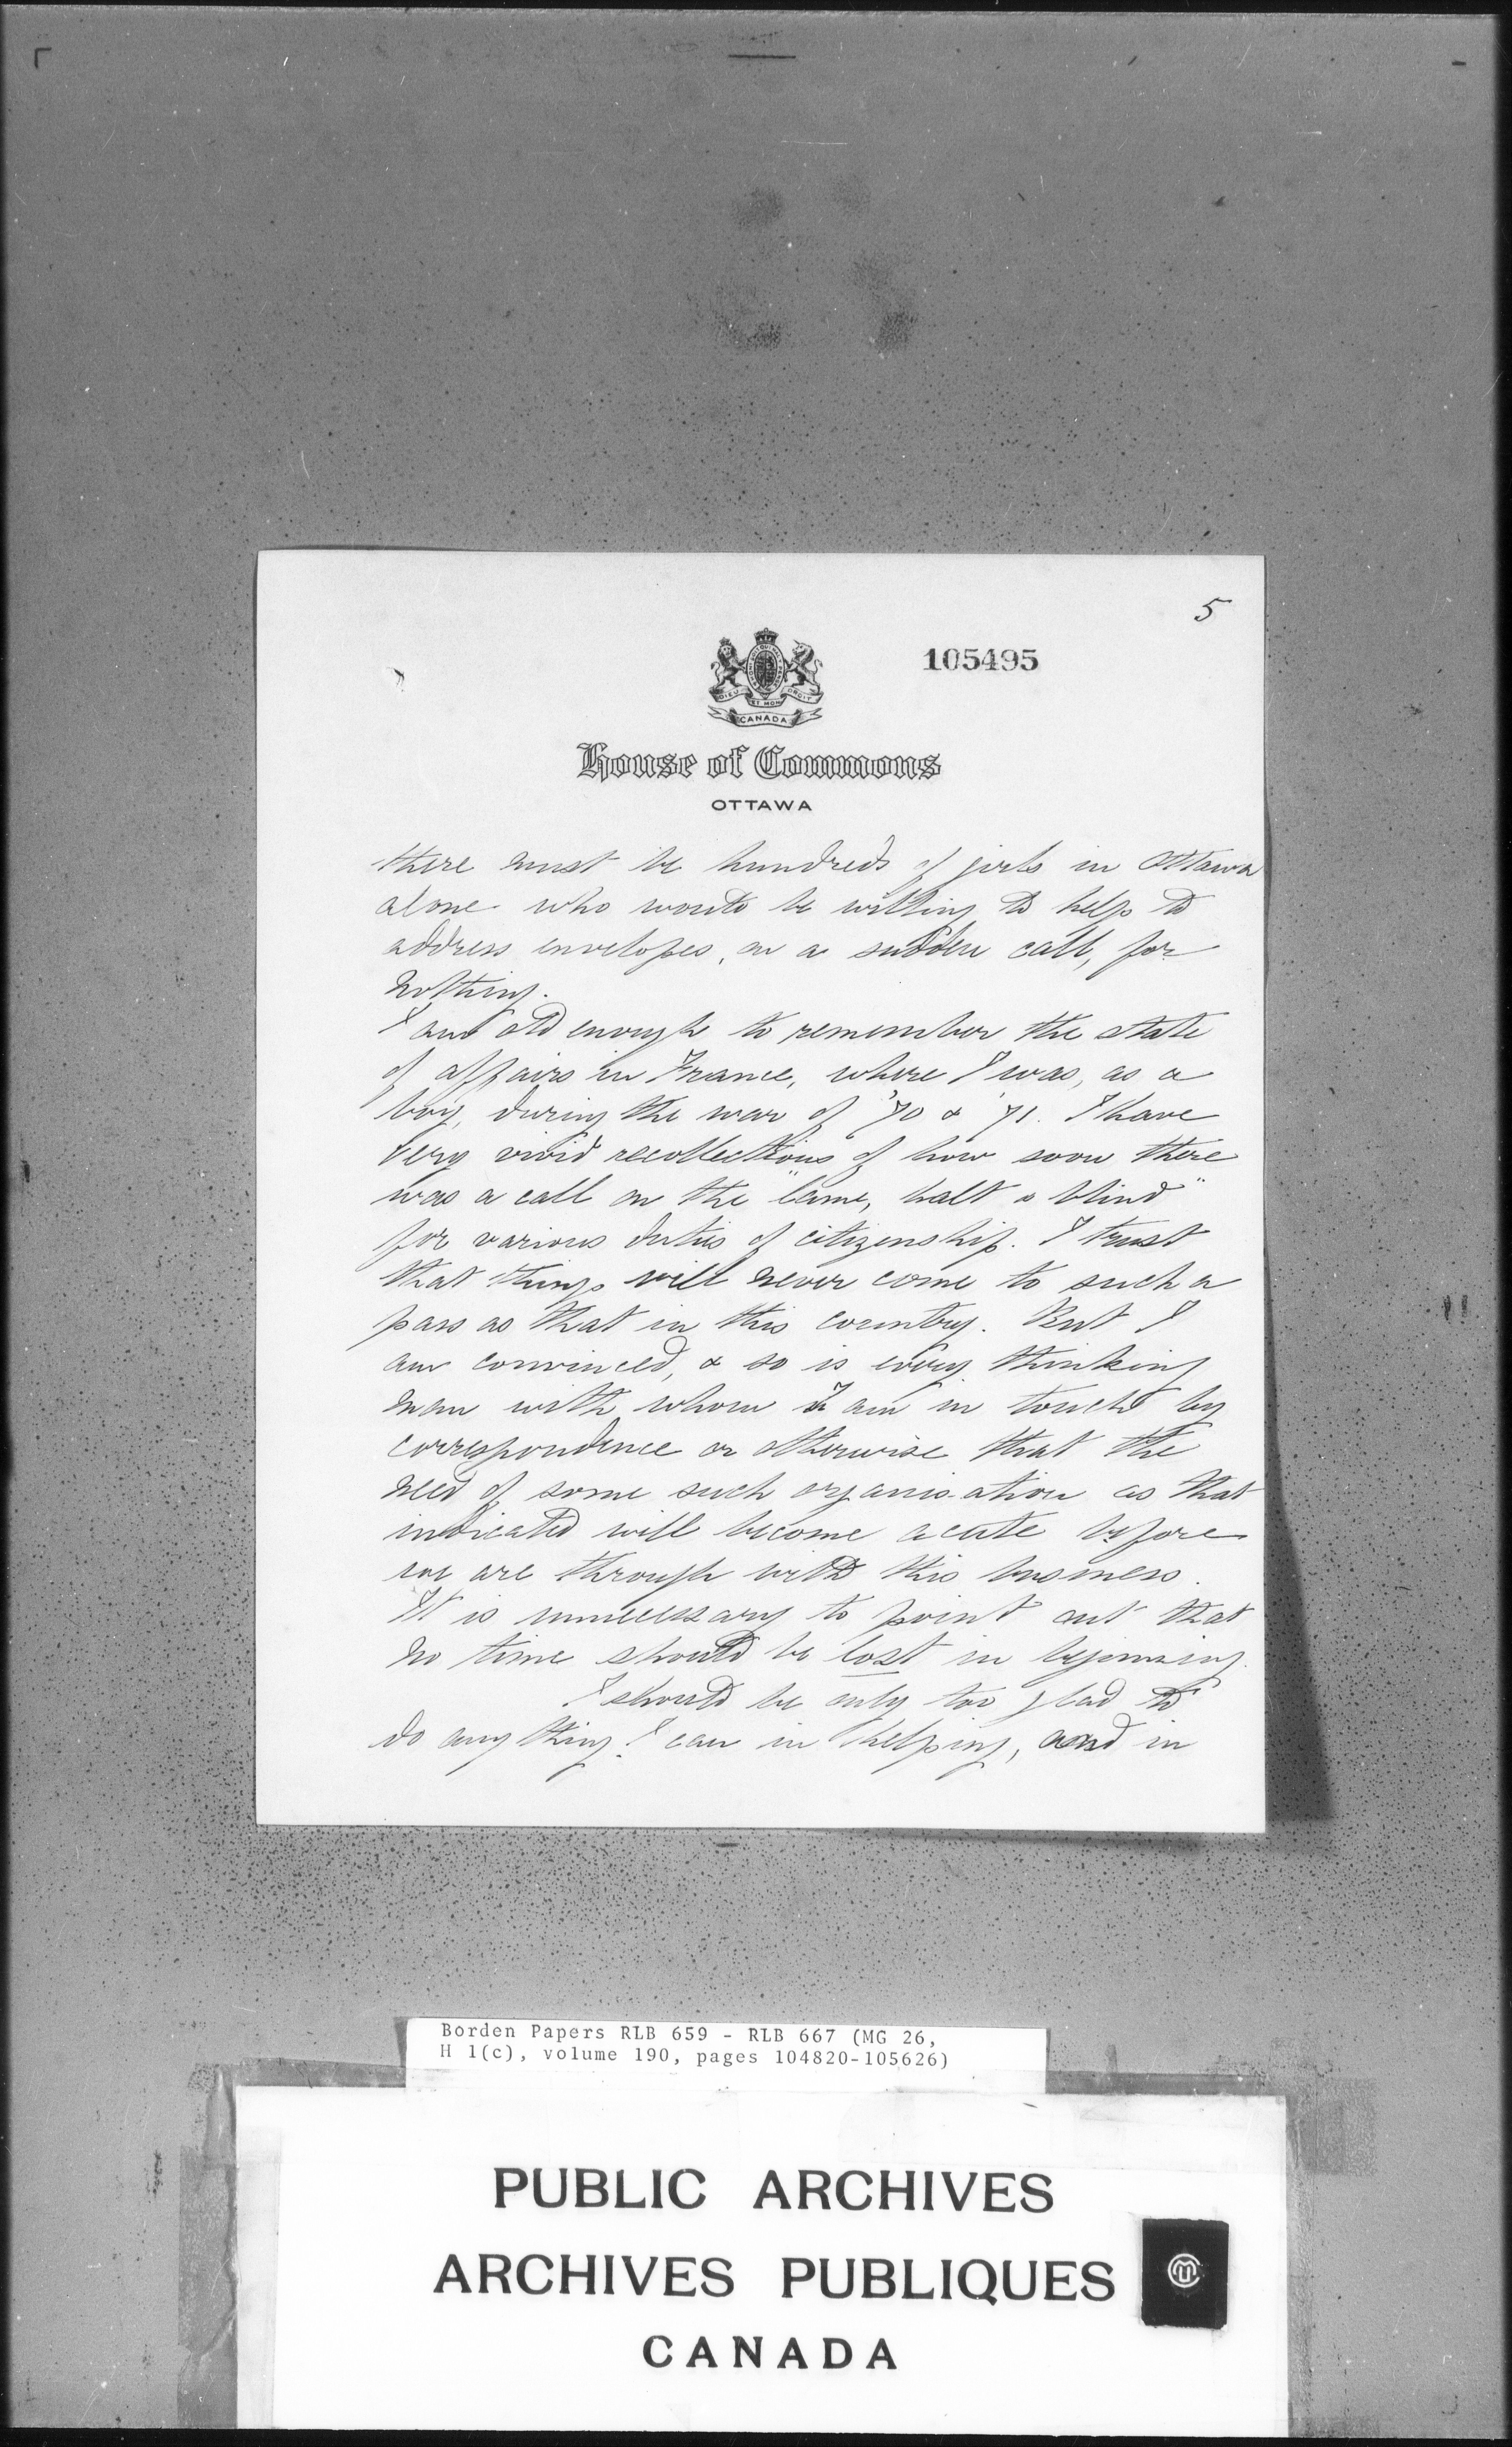 5
105495
DIEU ET MON DROIT
CANADA
House of Commons
OTTAWA
there must be hundreds of girls in Ottawa
alone who would be willing to help to
address envelopes, on a sudden call, for
nothing.
I am old enough to remember the state
of affairs in France, where I was, as a
boy, during the war of '70 & '71. I have
very vivid recollections of how soon there
was a call on the "lame, halt & blind"
for various duties of citizenship. I trust
that things will never come to such a
pass as that in this country. But I
am convinced, & so is every thinking
man with whom I am in touch by
correspondence or otherwise that the
need of some such organisation as that
indicated will become acute before
we are through with this business.
It is unnecessary to point out that
no time should be lost in beginning.
I should be only too glad to
do anything I can in helping, and in
Borden Papers RLB 659 - RLB 667 (MG 26,
H 1(c), volume 190, pages 104820-105626)
PUBLIC ARCHIVES
ARCHIVES PUBLIQUES
CANADA